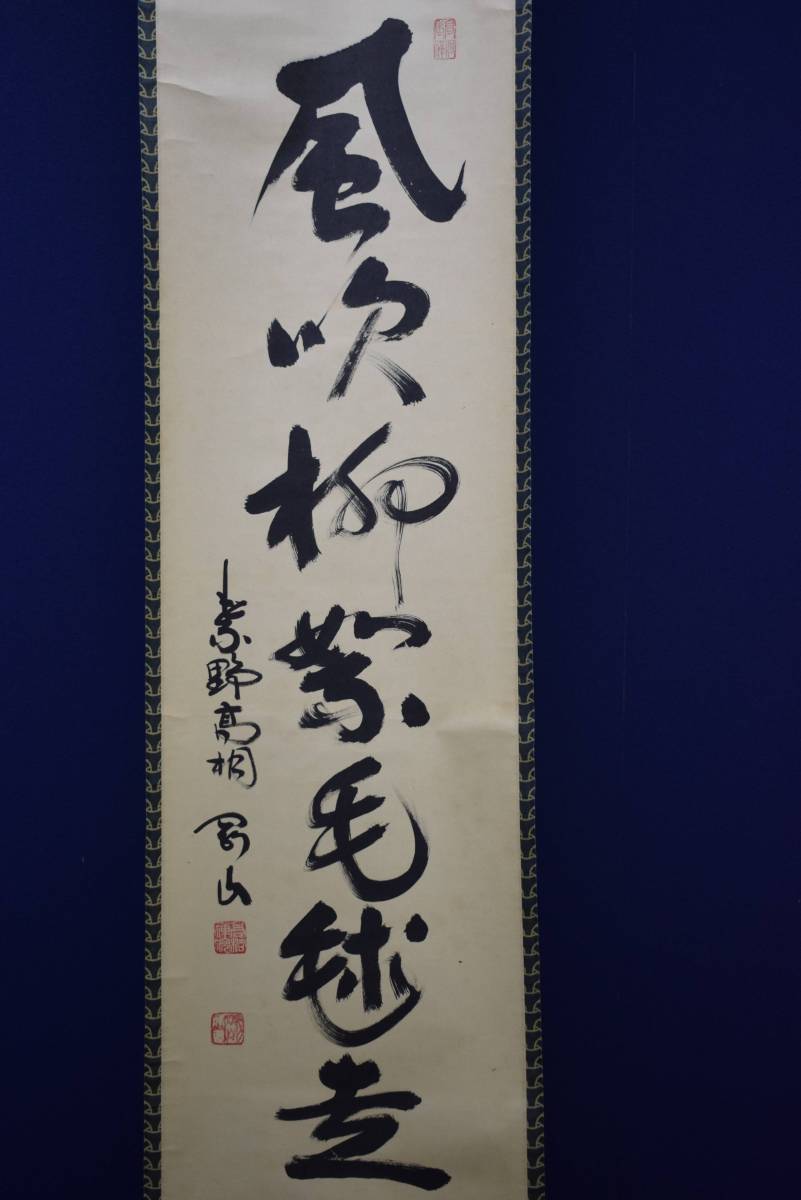 風吹柳絮毛毬走
紫野高桐 剛山